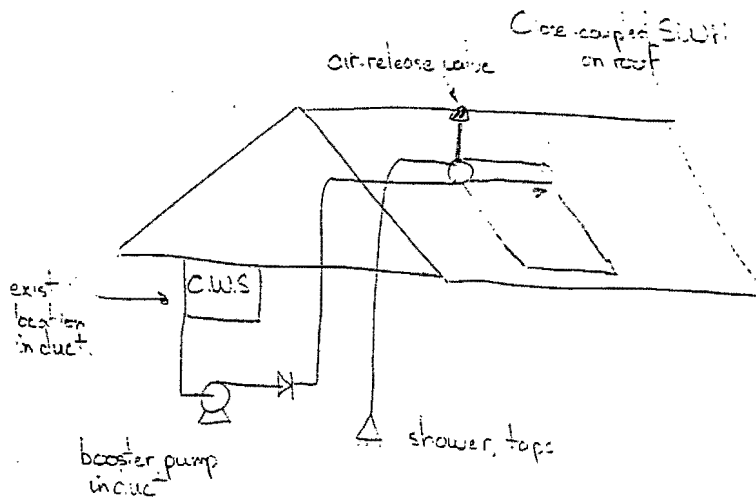 Close-coupled S.W.H
on roof
air-release valve
C.W.S
exist
location
in duct.
booster pump
in duct
shower, taps